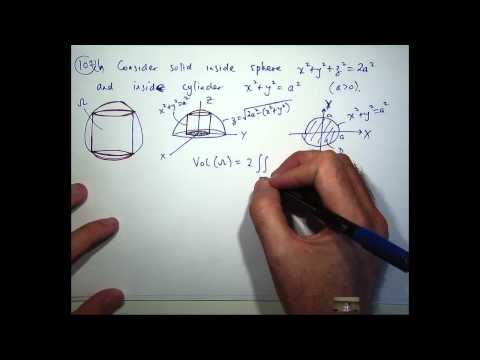 107h Consider solid inside sphere x²+y²+z² = 2a²
and inside cylinder x²+y² = a² (a>0).
Ω x²+y²=a² z z=√(2a²-(x²+y²)) y x
y x²+y²=a² a a a x
Vol(Ω) = 2∬